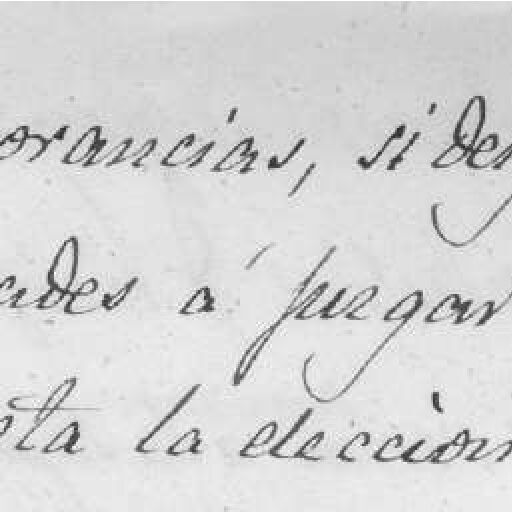 orancias, si de
ades á juzgar
ta la eleccion